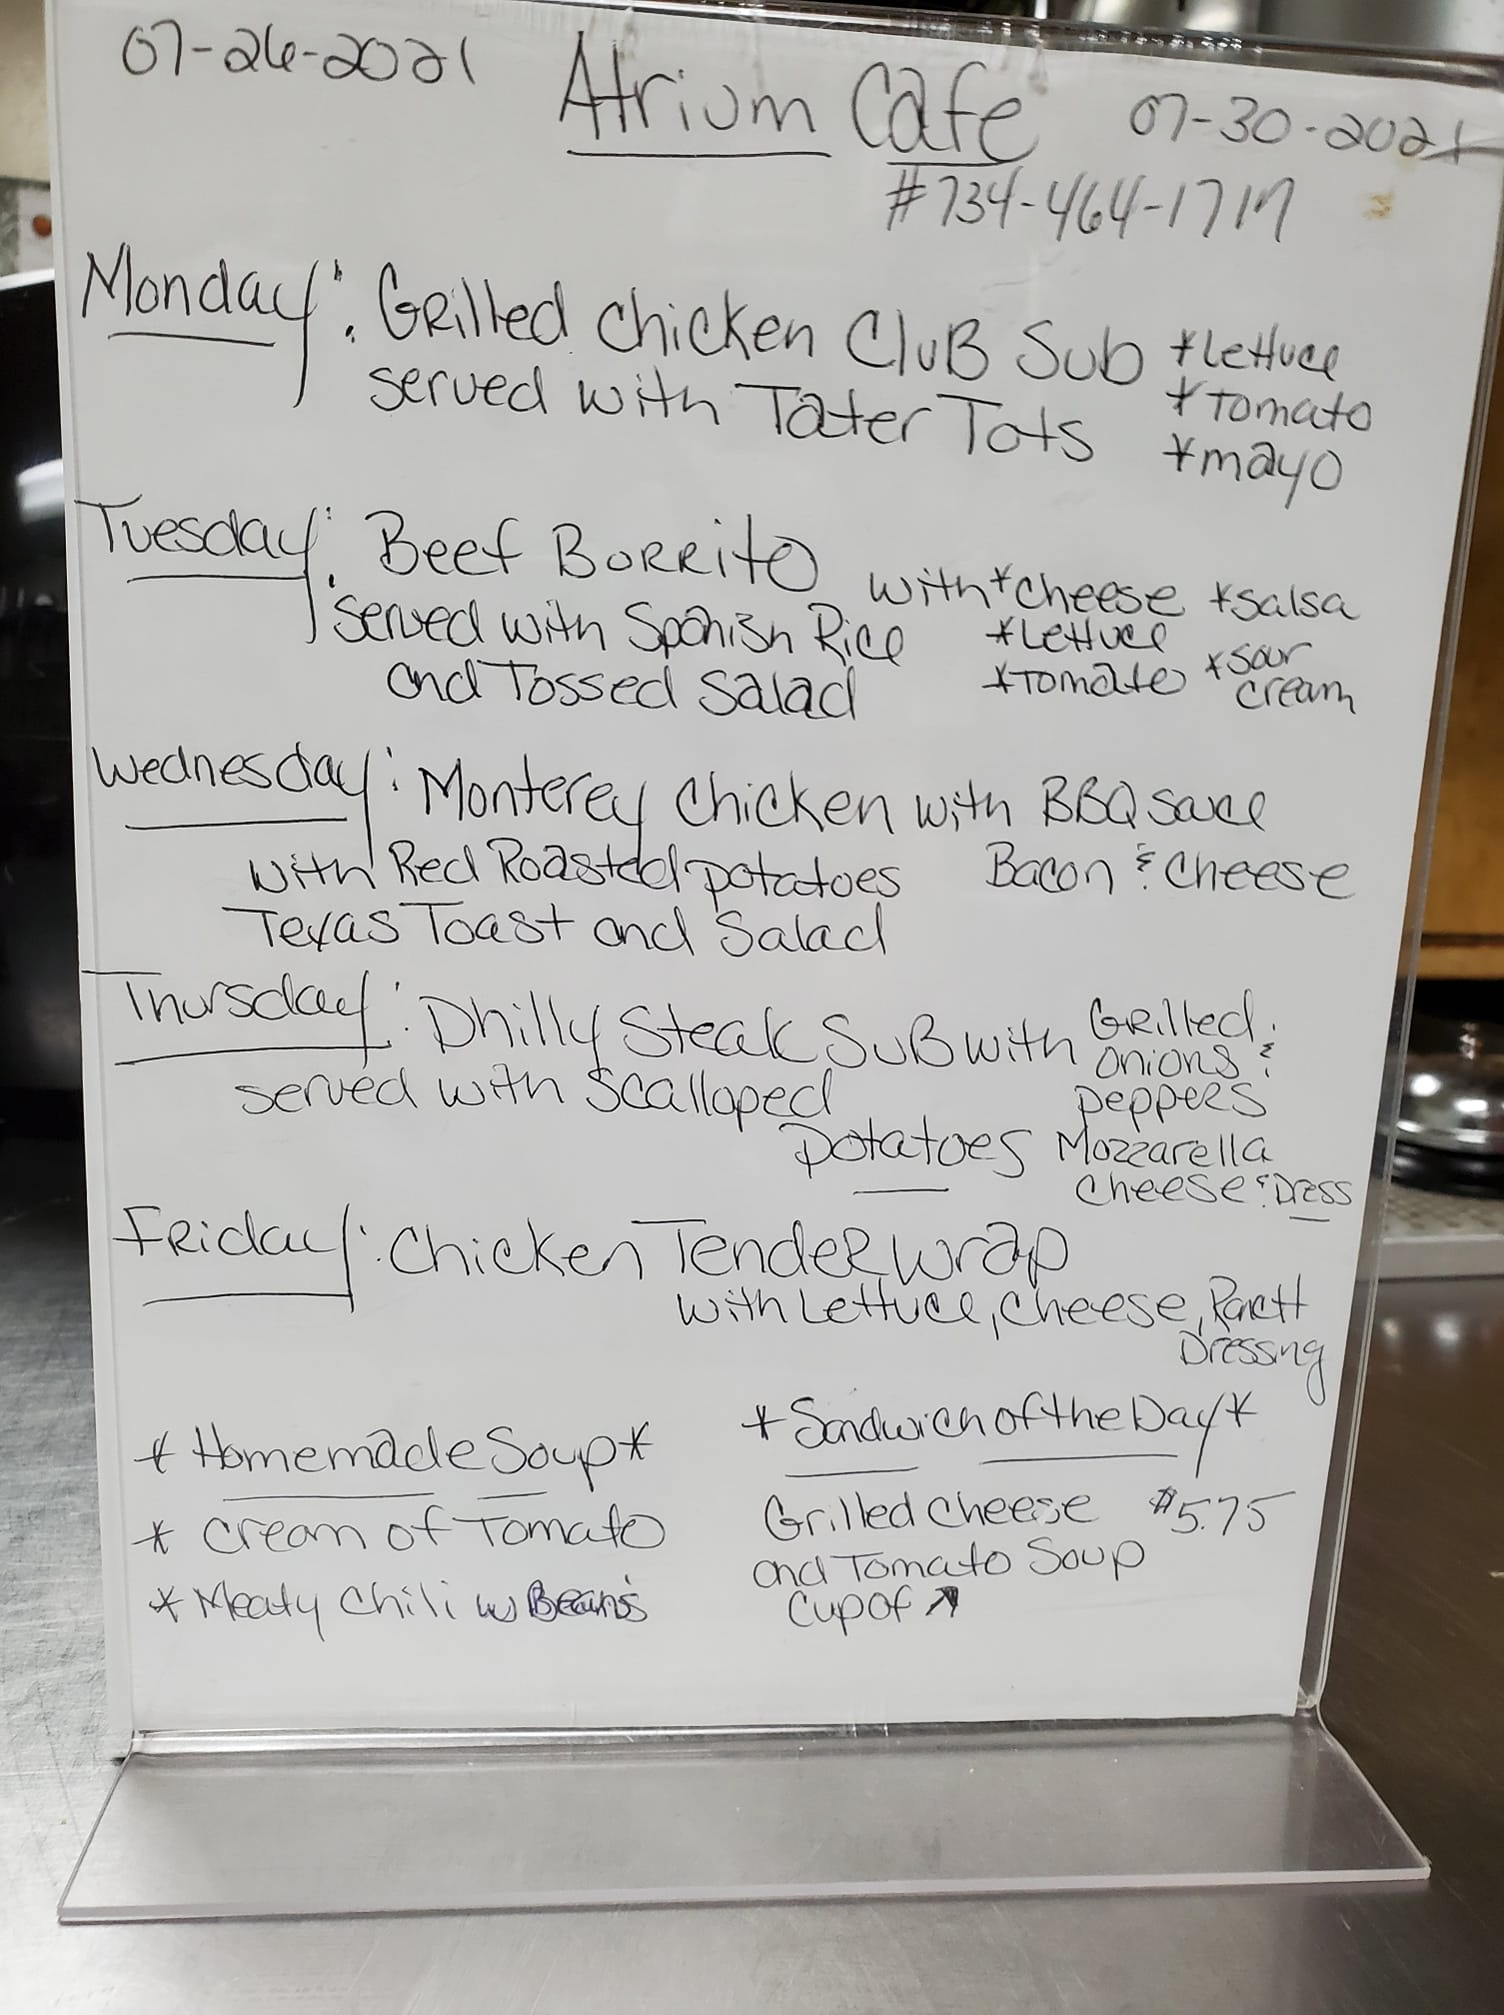 07-26-2021 Atrium Cafe 07-30-2021
#734-464-1717
Monday: Grilled Chicken Club Sub *Lettuce
served with Tater Tots *Tomato
*mayo
Tuesday: Beef Borrito with *Cheese *Salsa
served with Spanish Rice *Lettuce
and Tossed Salad *Tomato *Sour cream
Wednesday: Monterey Chicken with BBQ Sauce
with Red Roasted potatoes Bacon & Cheese
Texas Toast and Salad
Thursday: Philly Steak Sub with Grilled
onions &
served with Scalloped peppers
potatoes Mozzarella
Cheese & Dress
Friday: Chicken Tender wrap
with Lettuce, Cheese, Ranch
Dressing
*Homemade Soup* *Sandwich of the Day*
* Cream of Tomato Grilled Cheese $5.75
and Tomato Soup
* Meaty Chili w Beans Cup of